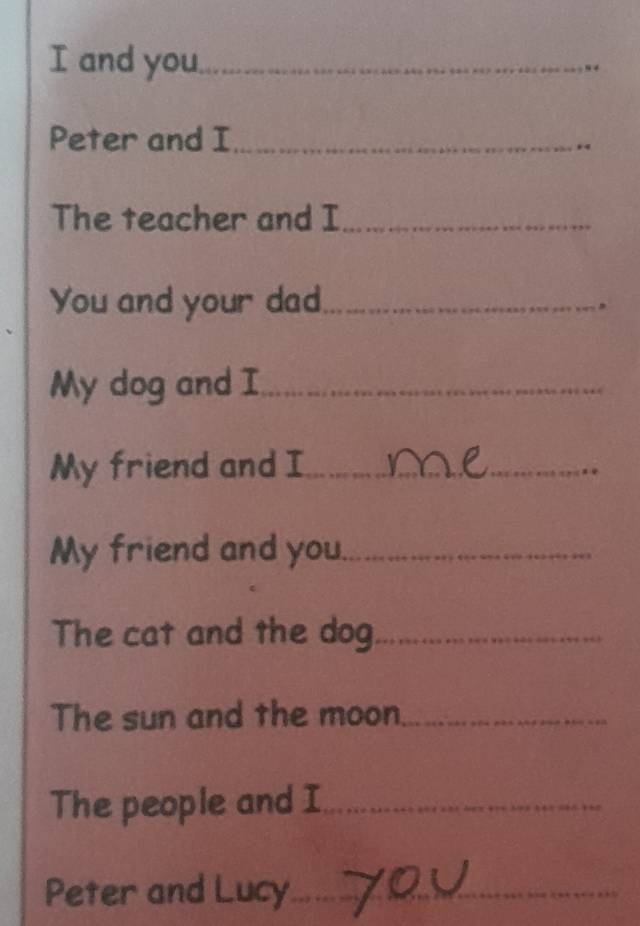 I and you....................................................
Peter and I..............................................
The teacher and I.................................
You and your dad.....................................
My dog and I.............................................
My friend and I.......... me ..............
My friend and you.................................
The cat and the dog..............................
The sun and the moon...........................
The people and I.....................................
Peter and Lucy...... you ....................